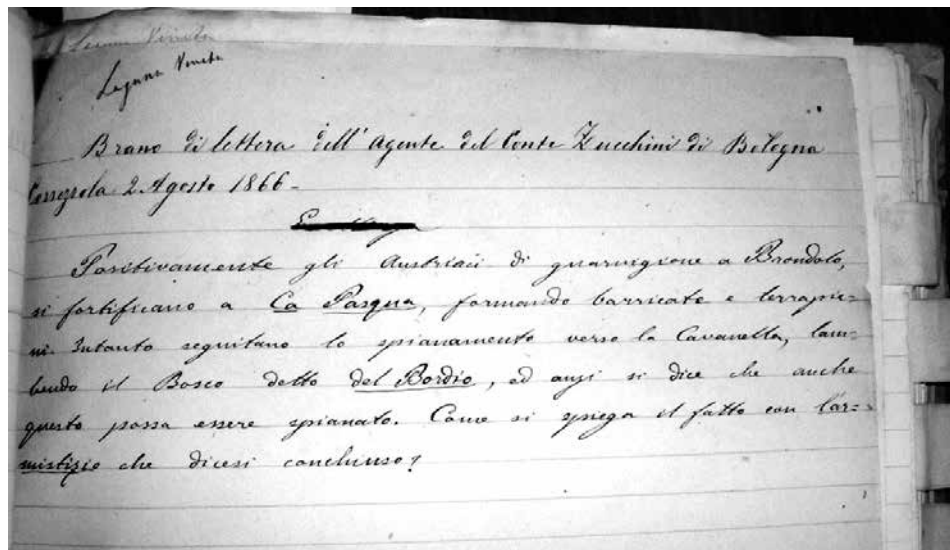 Laguna Veneta
Laguna Veneta
Brano di lettera dell' Agente del Conte Zucchini di Bologna
2. Agosto 1866 -
Positivamente gli Austriaci di guarnigione a Brondolo,
si fortificano a Ca Pasqua, formando barricate e terrapie=
ni. Intanto seguitano lo spianamento verso la Cavanella, lam=
bendo il Bosco detto del Bordio, ed anzi si dice che anche
questo possa essere spianato. Come si spiega il fatto con l'ar=
mistizio che dicesi conchiuso?